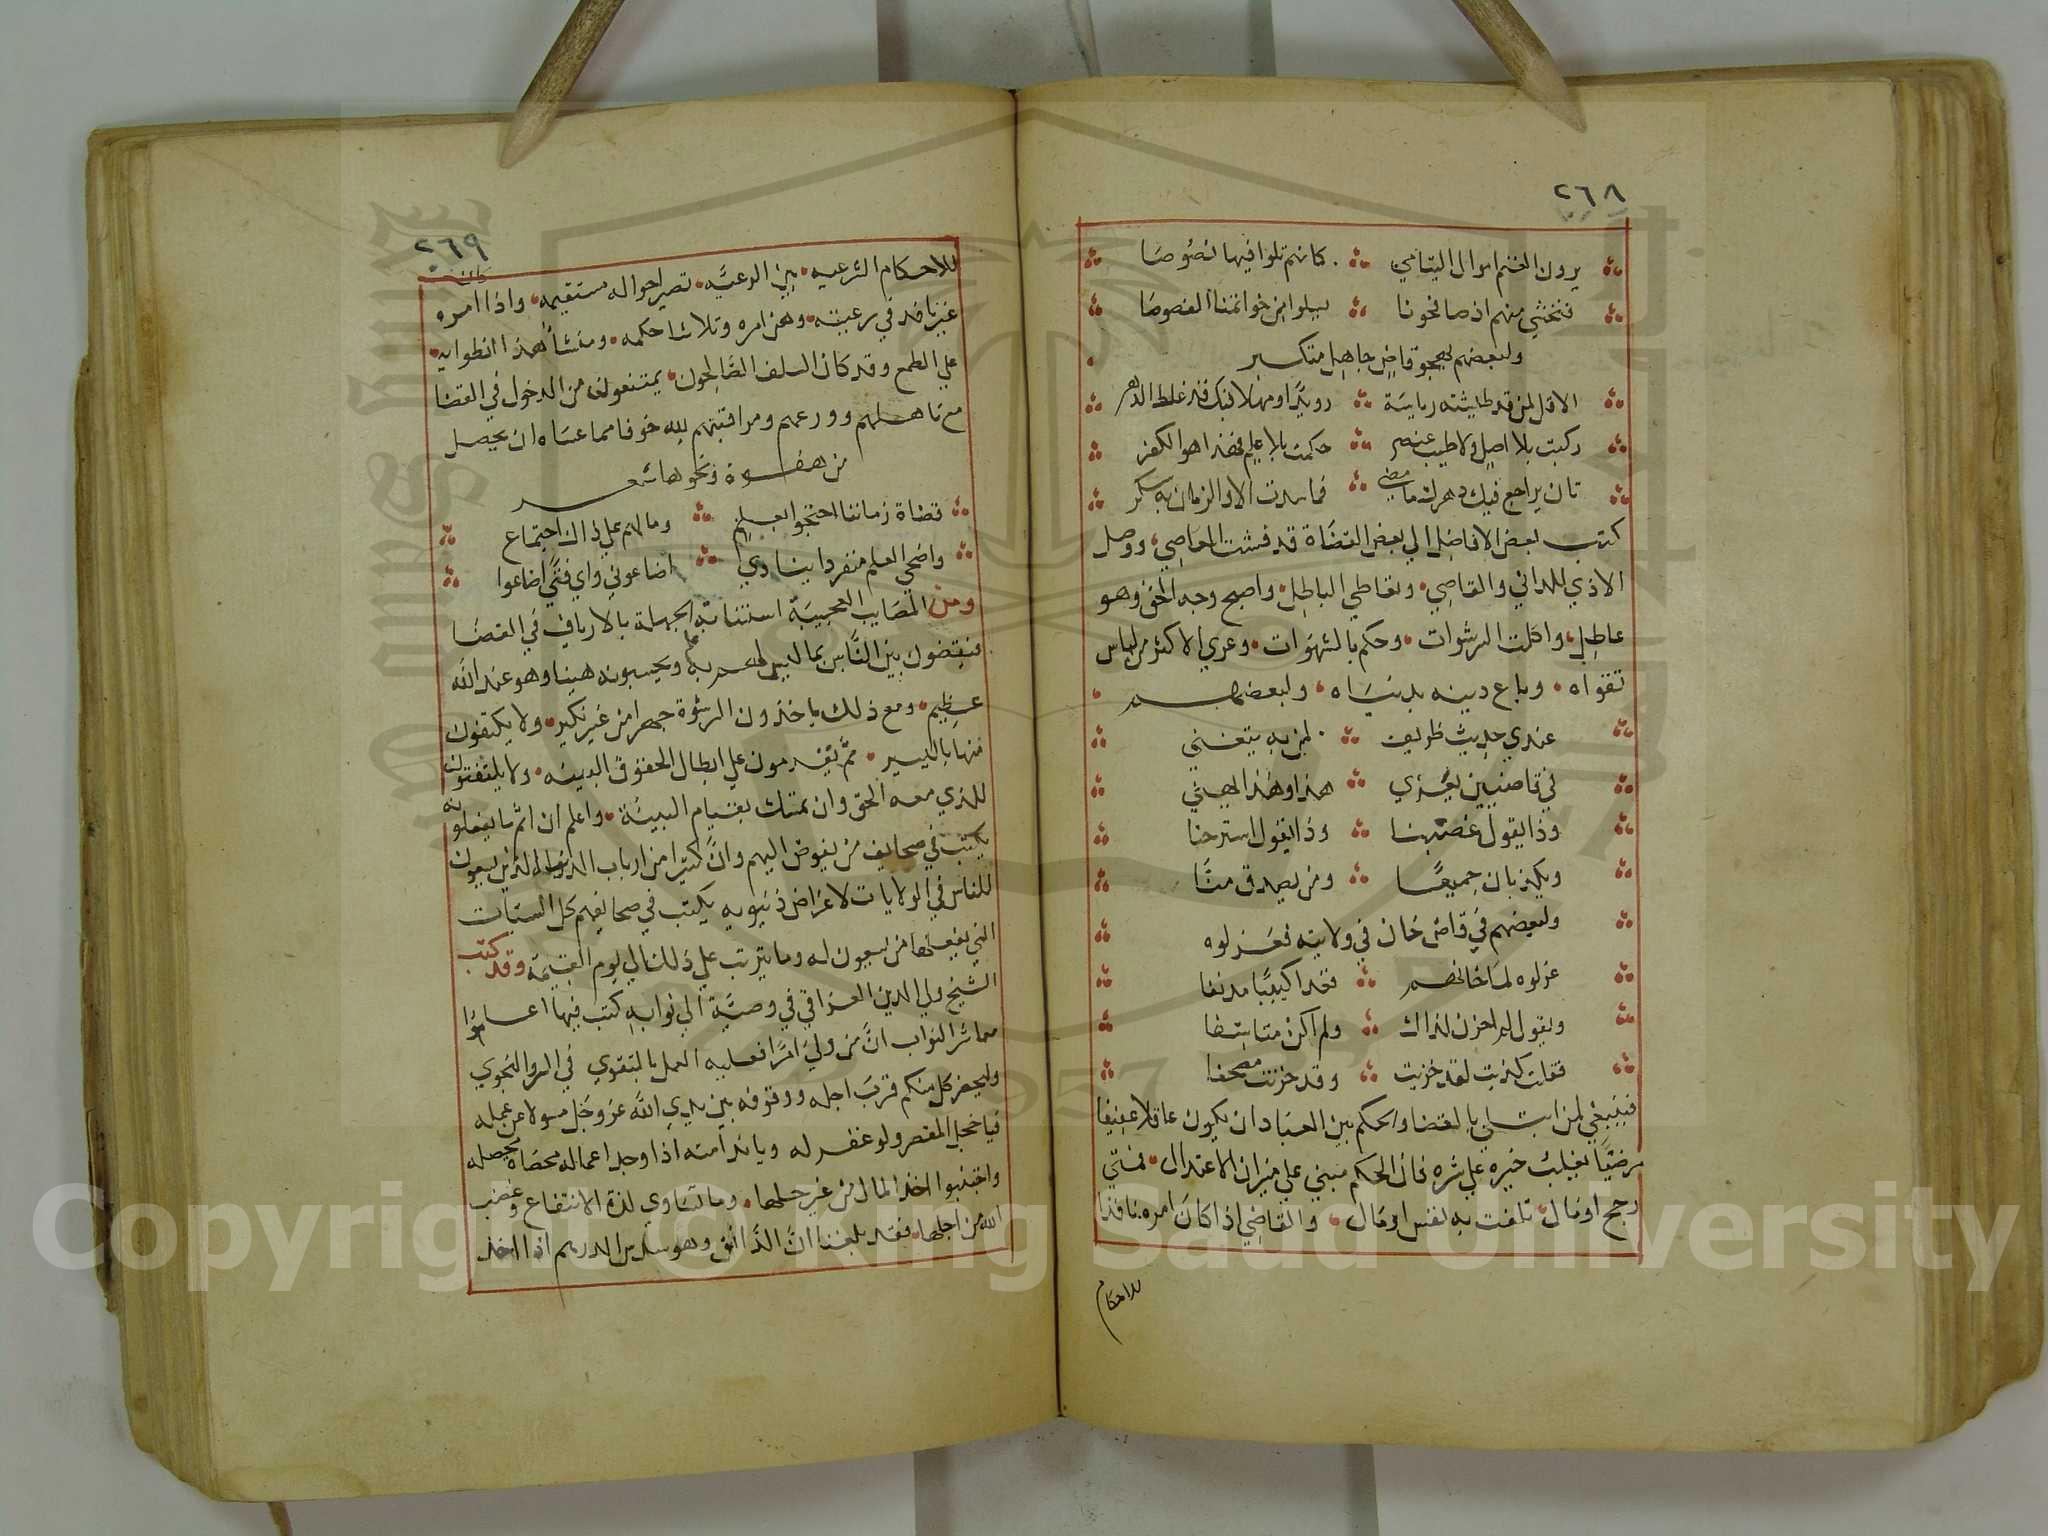 ٢٦٨
يرون الغنم اموال اليتامي كانهم تلوا فيها نصوصا
فنخشي منهم اذ صافحونا يسلوا من خواتمنا الفصوصا
ولبعضهم يهجو قاض جاهل متكسر
الا قل لمن قد طيشته رياسة رويدا ومهلا فيك قد غلط الدهر
ركبت بلا اصل ولا طيب عنصر حكمت بلا علم فهذا هو الكفر
تان يراجع فيك دهرك ما مضي فما سدت الا والزمان به سكر
كتب بعض الافاضل الي بعض القضاة قد فشت المعاصي ووصل
الاذي للداني والقاصي وتعاطي الباطل واصبح وجه الحق وهو
عاطل واكلت الرشوات وحكم بالشهوات وعري الاكثر من لباس
تقواه وباع دينه بدنياه ولبعضهم
عندي حديث ظريف لمن به يتغني
في قاضيين يعزي هذا وهذا يهني
وذا يقول غصبنا وذا يقول استرحنا
ويكذبان جميعا ومن يصدق منا
ولبعضهم في قاض خان في ولايته فعزلوه
عزلوه لما خانهم فغدا كئيبا مدنفا
ويقول لم احزن لذاك ولم اكن متاسفا
فقلت كذبت لقد حزنت وقد حزنت مصحفا
فينبغي لمن ابتلي بالقضا والحكم بين العباد ان يكون عاقلا عفيفا
مرضيا يغلب خيره علي شره فان الحكم مبني علي ميزان الاعتدال فمتي
رجح او مال تلفت به نفس او مال والقاضي اذا كان امره نافذا
للاحكام
٢٦٩
للاحكام الشرعيه بين الرعيه تصير احواله مستقيمه واذا امره
غير نافد في رعيته وهن امره وتلاشا حكمه ومنشأ هذا انطوايه
علي الطمع وقد كان السلف الصالحون يمتنعون من الدخول في القضا
مع تاهلهم وورعهم ومراقبتهم لله خوفا مما عساه ان يحصل
من هفوة ونحوها شعر
قضاة زماننا احتجوا بعلم وما لهم علي ذاك اجتماع
واضحي العلم منفردا ينادي اضاعوني واي فتي اضاعوا
ومن المصايب العجيبة استنابة الجهلة بالارياف في القضا
فيقضون بين الناس بما ليس لهم به ويحسبونه هينا وهو عند الله
عظيم ومع ذلك ياخذون الرشوة جهرا من غير نكير ولا يكتفون
منها باليسير ثم يقدمون علي ابطال الحقوق البينه ولا يلتفتون
للذي معه الحق وان تمسك بقيام البينة واعلم ان اثم ما يفعلونه
يكتب في صحايف من يفوض اليهم وان كثيرا من ارباب الذين يسعون
للناس في الولايات لاغراض دنيويه يكتب في صحائفهم كل السيئات
التي يفعلها من يسعون له وما يترتب علي ذلك الي يوم القيمة وقد كتب
الشيخ ولي الدين العراقي في وصية الي نوابه كتب فيها اعلموا
معاشر النواب ان من ولي امرا فعليه العمل بالتقوي في السر والنجوي
وليحضر كل منكم قرب اجله ووقوفه بين يدي الله عز وجل مسولا عن عمله
فيا خجل المقصر ولو غفر له ويا ندامته اذا وجد اعماله محصاة محصله
واجتنبوا اخذ المال من غير حله وما تساوي لذة الانتفاع وغضب
الله من اجلها فقد بلغنا ان الدانق وهو سدس الدرهم اذا اخذ
Copyright © King Saud University
1957